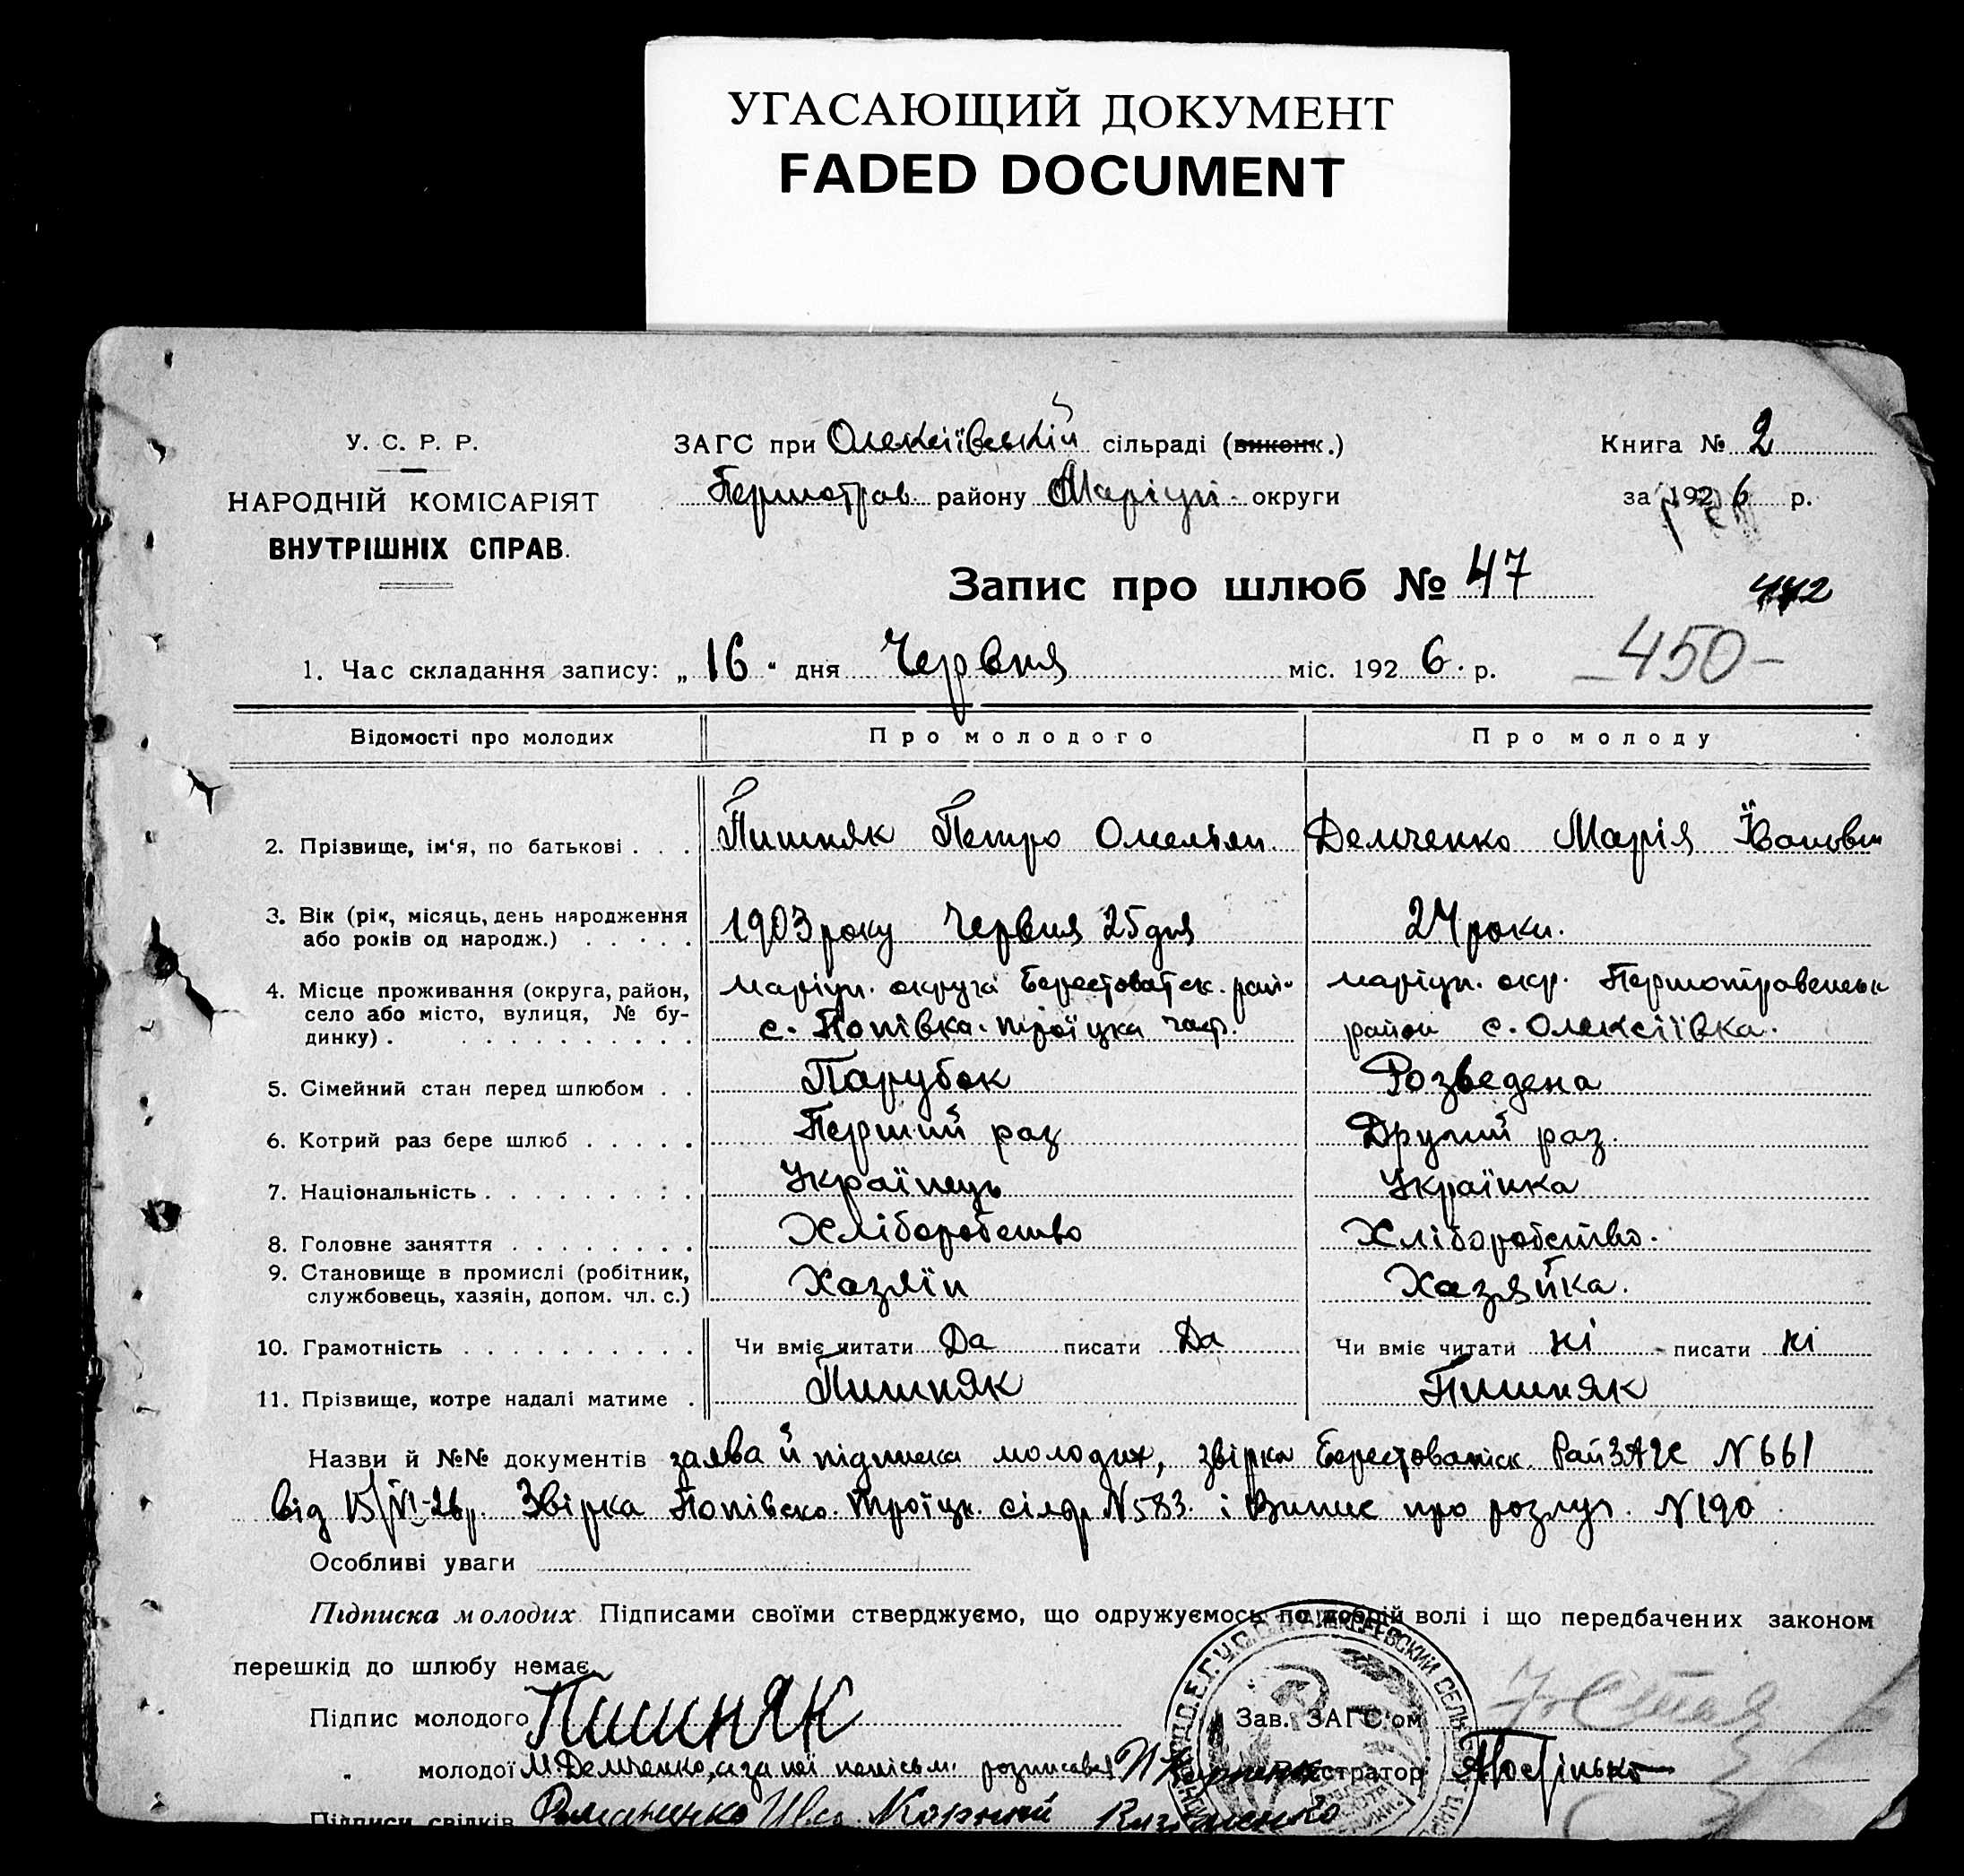 УГАСАЮЩИЙ ДОКУМЕНТ
FADED DOCUMENT
У. С. Р. Р.
НАРОДНІЙ КОМІСАРІЯТ
ВНУТРІШНІХ СПРАВ.
ЗАГС при Олексіївській сільраді (виконк.)
Першотрав. району Маріупі. округи
Книга № 2
за 1926 р.
Запис про шлюб № 47
442
450
1. Час складання запису: „16" дня Червня міс. 1926. р.
Відомості про молодих Про молодого Про молоду
2. Прізвище, ім'я, по батькові . . . Пишняк Петро Омельян. Демченко Марія Івановн
3. Вік (рік, місяць, день народження або років од народж.) . . . . . 1903 року Червня 25 дня 24 роки.
4. Місце проживання (округа, район, маріуп. округа Берестоватск. рай. маріуп. окр. Першотравенськ
село або місто, вулиця, № бу- с. Попівка. троїцка част. район с. Олексіївка.
динку) . . . . . . . . . . .
5. Сімейний стан перед шлюбом . . Парубок Розведена
6. Котрий раз бере шлюб . . . . . Перший раз Другий раз.
7. Національність . . . . . . . . . Українець Українка
8. Головне заняття . . . . . . . . Хліборобство Хліборобство.
9. Становище в промислі (робітник, службовець, хазяін, допом. чл. с.) Хазяїн Хазяйка.
10. Грамотність . . . . . . . . . . Чи вміє читати Да писати Да Чи вміє читати Ні писати Ні
11. Прізвище, котре надалі матиме . Пишняк Пишняк
Назви й №№ документів заява й підписка молодих, звірка Берестоватськ. РайЗАГС N 661
від 15/VI-26р. Звірка Попівско. Троїцк. сілр N 583. і Випис про розлуч. N 190
Особливі уваги
Підписка молодих. Підписами своїми стверджуємо, що одружуємось по добрій волі і що передбачених законом
перешкід до шлюбу немає.
Підпис молодого Пишняк Зав. ЗАГС'ом
„ молодої М Демченко, а за неї непісьм. розписався Реєстратор
Підписи свідків Корній